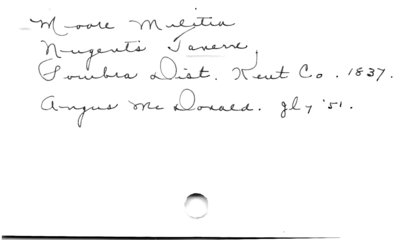 Moore Militia
Nugent's Taverne,
Sombra Dist. Kent Co. 1837.
Angus McDonald. Gl 7 '51.